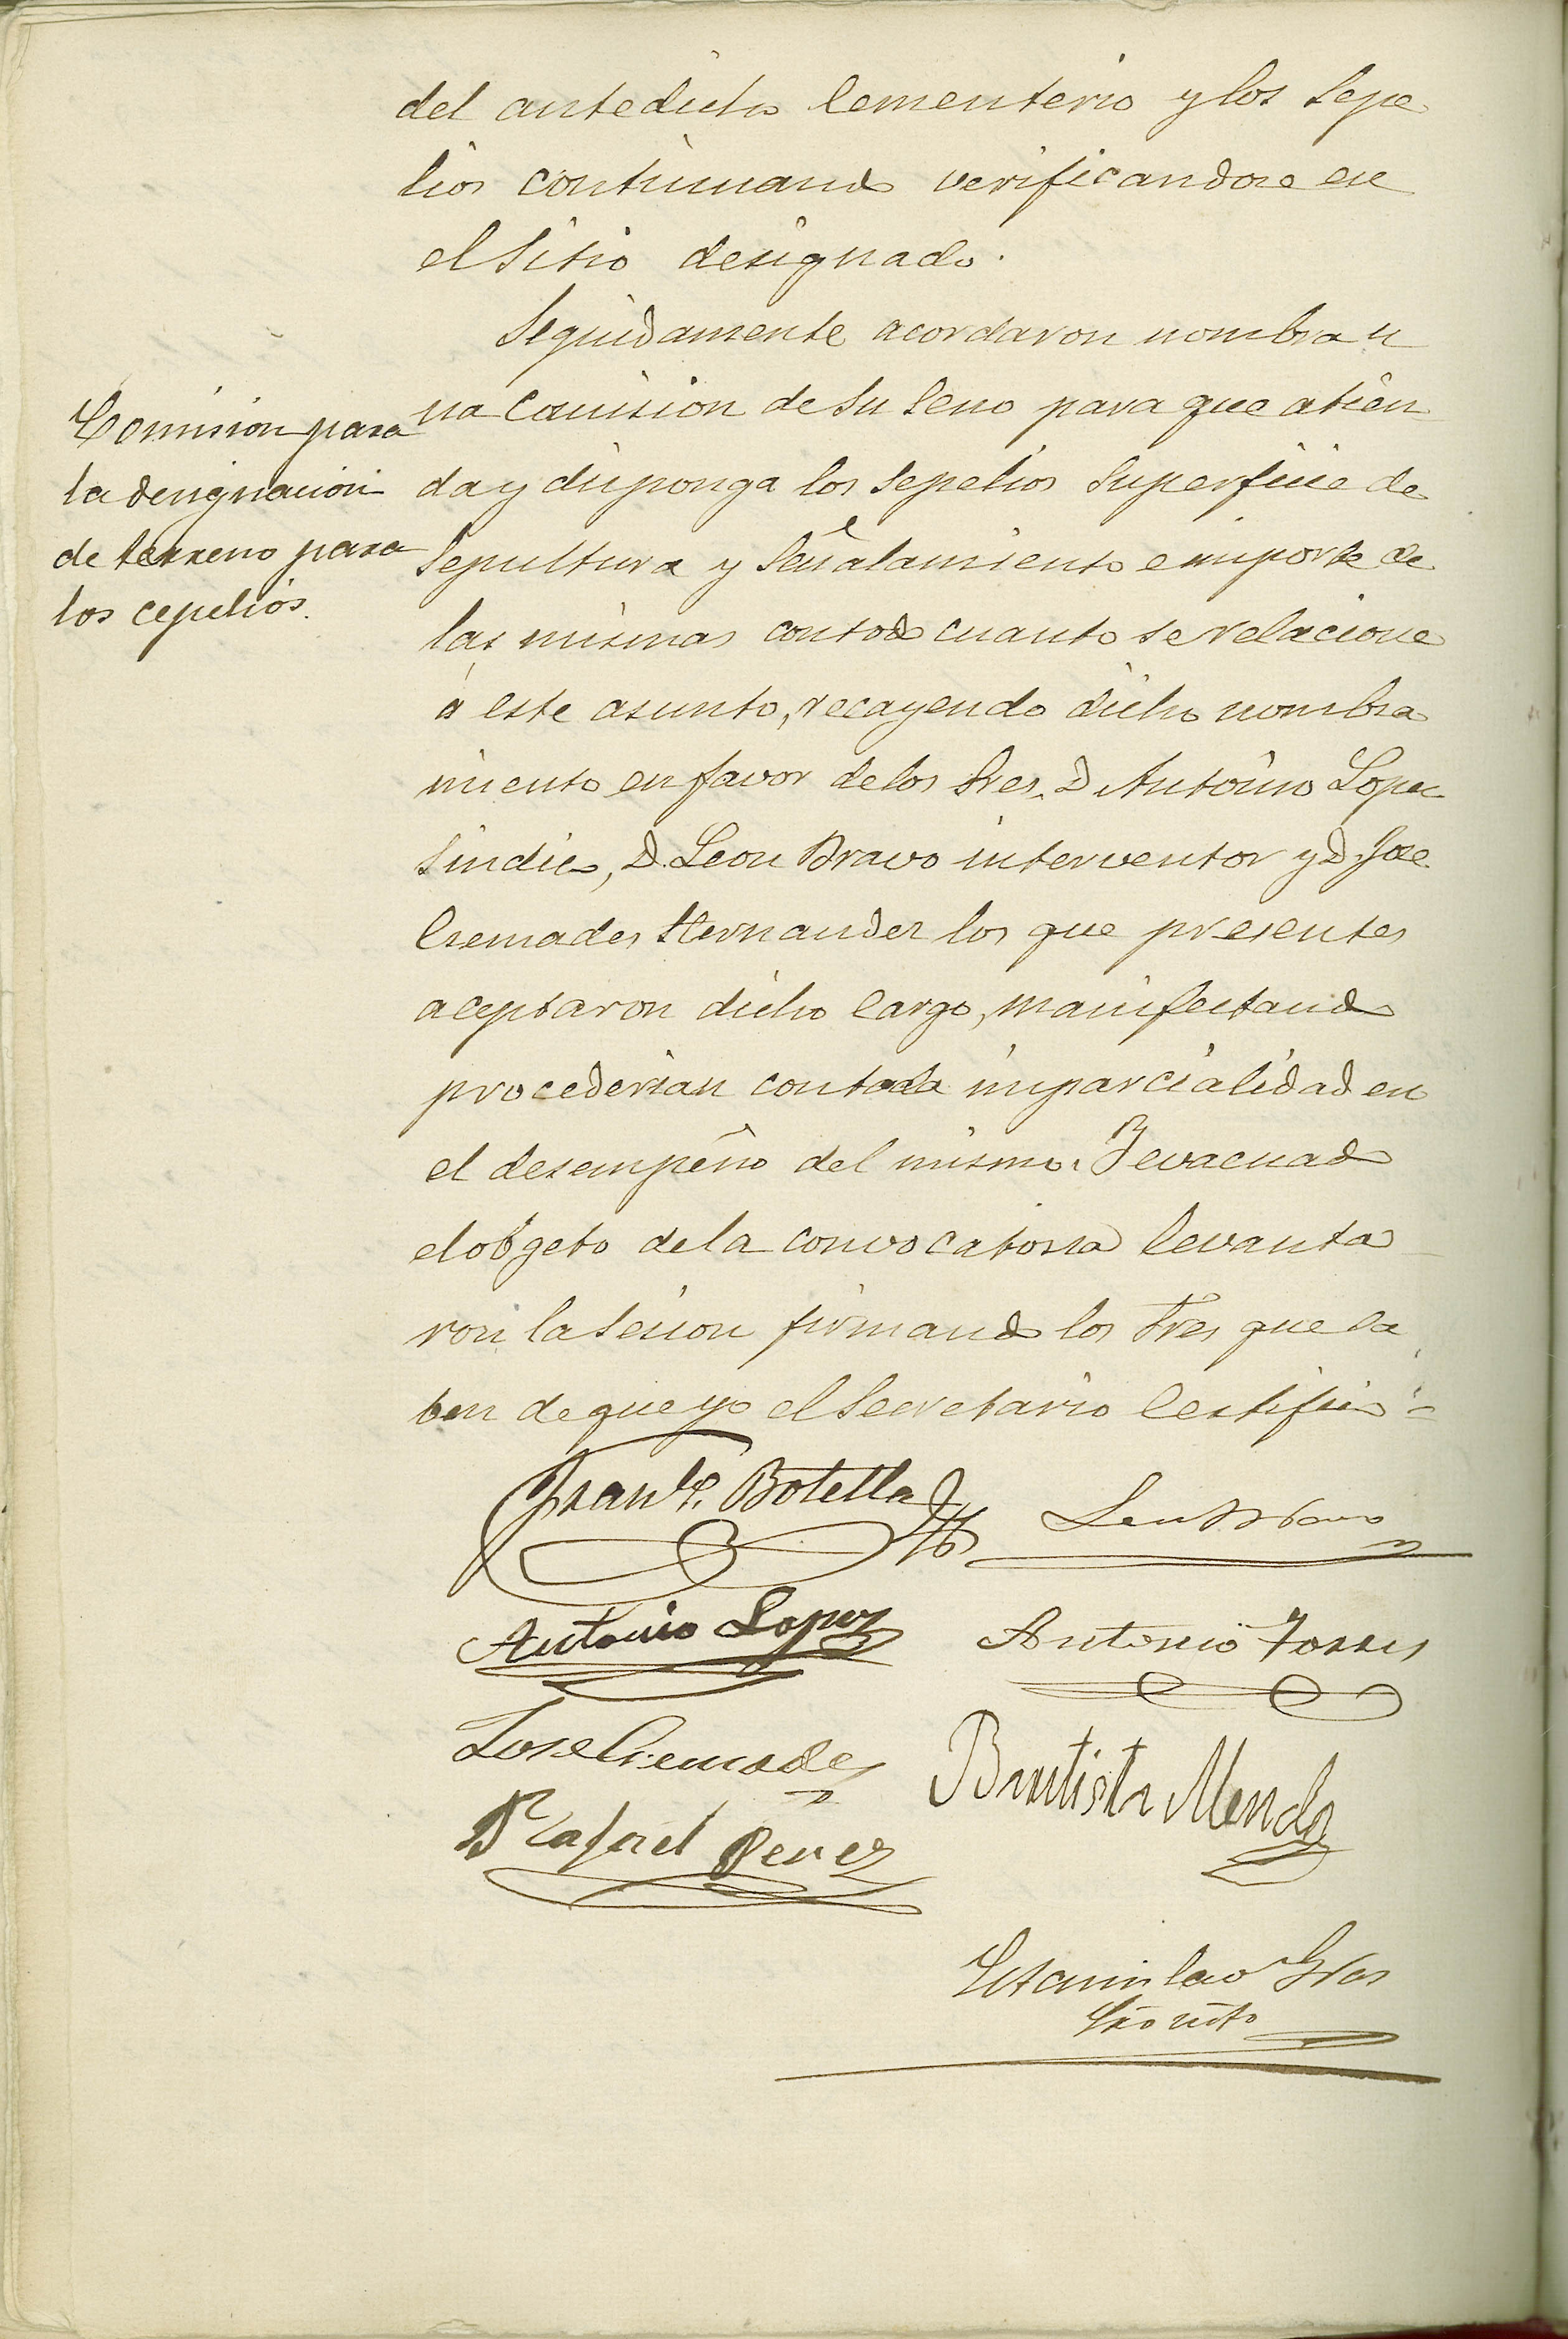 del antedicho Cementerio y los Sepe
lios continuando verificandose en
el Sitio designado.
Seguidamente acordaron nombra u
na Comision de Su Seno para que atien
da y disponga los Sepelios Superficie de
Sepultura y Señalamiento e importe de
las mismas con todo cuanto se relacione
á este asunto, recayendo dicho nombra
miento en favor de los Sres. D Antonio Lopez
Sindico, D. Leon Bravo interventor y D. Jose
Cremades Hernandez los que presentes
aceptaron dicho Cargo, manifestando
procederian con toda imparcialidad en
el desempeño del mismo. Y evacuado
el obgeto de la convocatoria levanta
ron la Sesion firmando los Sres que sa
ben de que yo el Secretario Certifico =
Comision para
la designacion
de terreno para
los cepelios.
Franco. Botella
Leon Bravo
Antonio Lopez
Antonio Torres
Jose Cremades
Bautista Mendez
Rafael Perez
Estanislao Gras